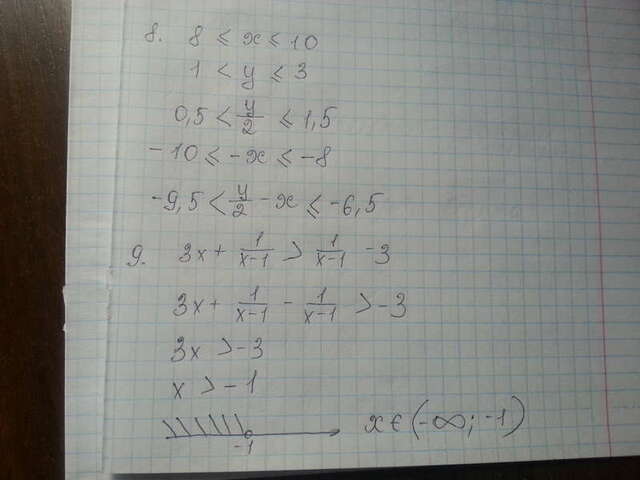 8. 8 ≤ x ≤ 10
1 < y ≤ 3
0,5 < y/2 ≤ 1,5
-10 ≤ -x ≤ -8
-9,5 < y/2 - x ≤ -6,5
9. 3x + 1/(x-1) > 1/(x-1) - 3
3x + 1/(x-1) - 1/(x-1) > -3
3x > -3
x > -1
-1 x ∈ (-∞; -1)